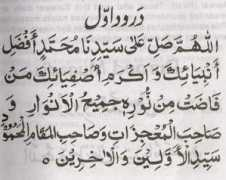 درود اوّل
اَللّٰهُمَّ صَلِّ عَلٰى سَيِّدِنَا مُحَمَّدٍ اَفْضَلِ
اَنْبِيَائِكَ وَاَكْرَمِ اَصْفِيَائِكَ مَنْ
فَاضَتْ مِنْ نُّوْرِهٖ جَمِيْعُ الْاَنْوَارِ وَ
صَاحِبِ الْمُعْجِزَاتِ وَصَاحِبِ الْمَقَامِ الْمَحْمُوْدِ
سَيِّدِ الْاَوَّلِيْنَ وَالْاٰخِرِيْنَ ه